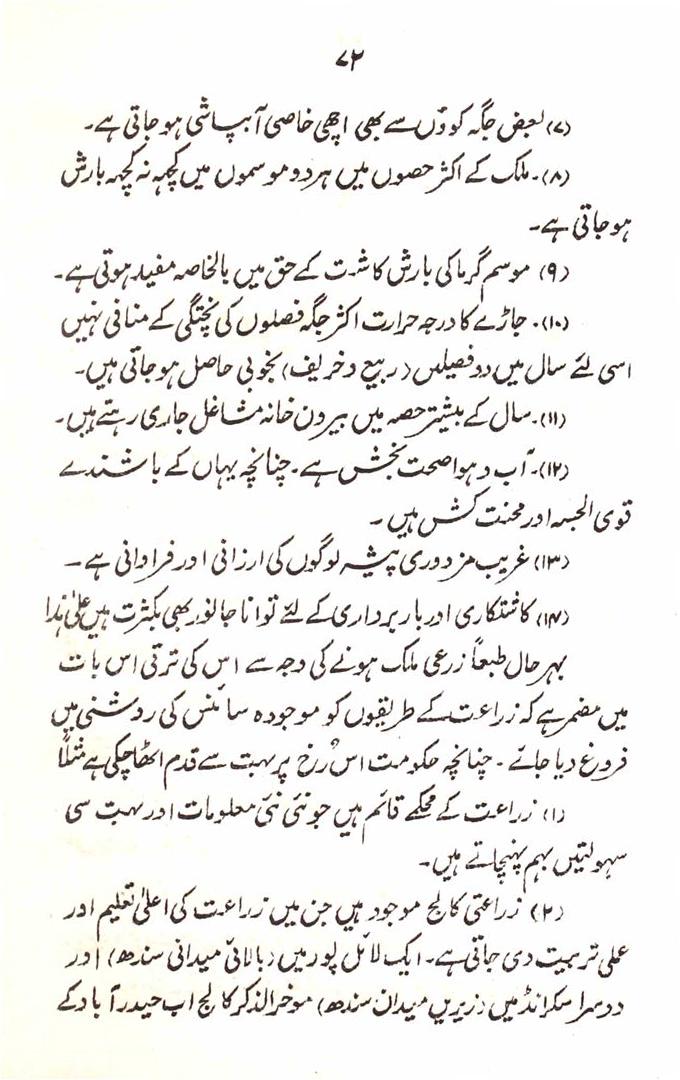 ۷۲
(۷) بعض جگہ کوؤں سے بھی اچھی خاصی آبپاشی ہو جاتی ہے۔
(۸)۔ ملک کے اکثر حصوں میں ہر دو موسموں میں کچہہ نہ کچہہ بارش
ہو جاتی ہے۔
(۹) موسم گرما کی بارش کاشت کے حق میں بالخاصہ مفید ہوتی ہے۔
(۱۰)۔ جاڑے کا درجہ حرارت اکثر جگہ فصلوں کی پختگی کے منافی نہیں
اسی لئے سال میں دو فصلیں (ربیع و خریف) بخوبی حاصل ہو جاتی ہیں۔
(۱۱)۔ سال کے بیشتر حصہ میں بیرون خانہ مشاغل جاری رہتے ہیں۔
(۱۲)۔ آب و ہوا صحت بخش ہے۔ چنانچہ یہاں کے باشندے
قوی الجسہ اور محنت کش ہیں۔
(۱۳) غریب مزدوری پیشہ لوگوں کی ارزانی اور فراوانی ہے۔
(۱۴) کاشتکاری اور باربرداری کے لئے توانا جانور بھی بکثرت ہیں علیٰ ہذا
بہر حال طبعاً زرعی ملک ہونے کی وجہ سے اس کی ترقی اس بات
میں مضمر ہے کہ زراعت کے طریقوں کو موجودہ سائنس کی روشنی میں
فروغ دیا جائے۔ چنانچہ حکومت اس رخ پر بہت سے قدم اٹھا چکی ہے مثلاً
(۱) زراعت کے محکمے قائم ہیں جو نئی نئی معلومات اور بہت سی
سہولتیں بہم پہنچاتے ہیں۔
(۲) زراعتی کالج موجود ہیں جن میں زراعت کی اعلیٰ تعلیم اور
عملی تربیت دی جاتی ہے۔ ایک لائل پور میں (بالائی میدانی سندھ) اور
دوسرا سکرانڈ میں (زیریں میدان سندھ) موخر الذکر کالج اب حیدرآباد کے